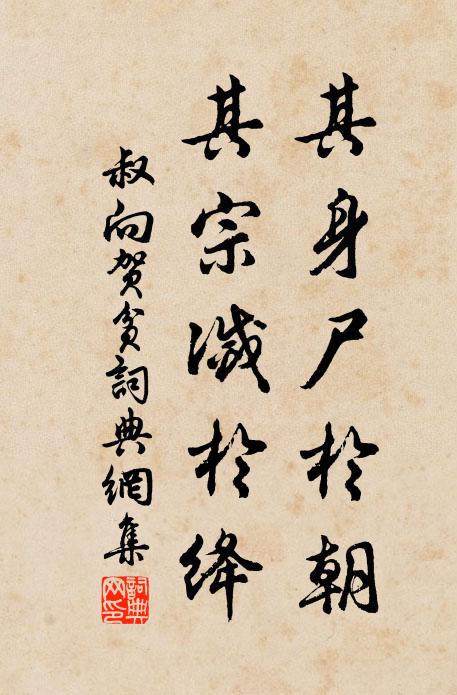 其身尸於朝
其宗滅於绛
叔向贺贫詞典網集
詞典網印